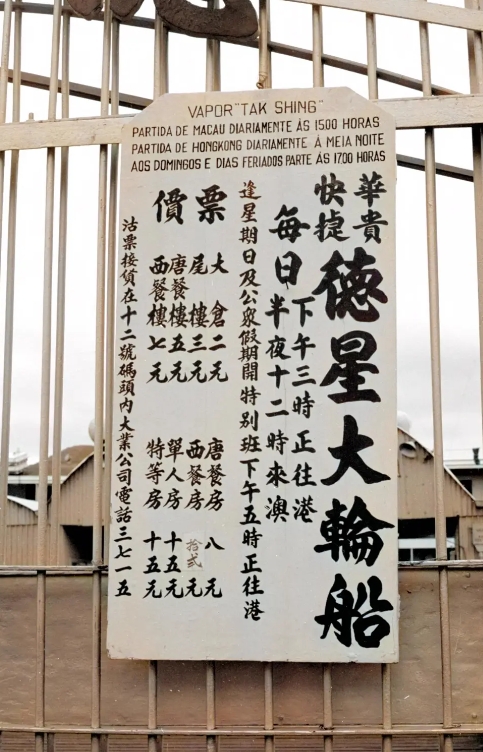 VAPOR "TAK SHING"
PARTIDA DE MACAU DIARIAMENTE ÁS 1500 HORAS
PARTIDA DE HONGKONG DIARIAMENTE Á MEIA NOITE
AOS DOMINGOS E DIAS FERIADOS PARTE ÁS 1700 HORAS
華貴
快捷
德星大輪船
每日
下午三時正往港
半夜十二時來澳
逢星期日及公眾假期開特别班下午五時正往港
票價
大倉二元
尾樓三元
唐餐樓五元
西餐樓七元
唐餐房八元
西餐房拾弍元
單人房十五元
特等房十五元
沽票接貨在十二號碼頭內大業公司電話三七一五